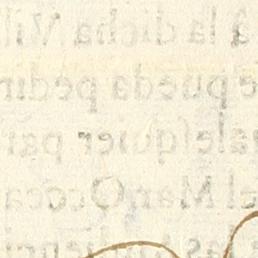 à la dicha Vill
e pueda pedir
ualeſquier par
el Mar Occea